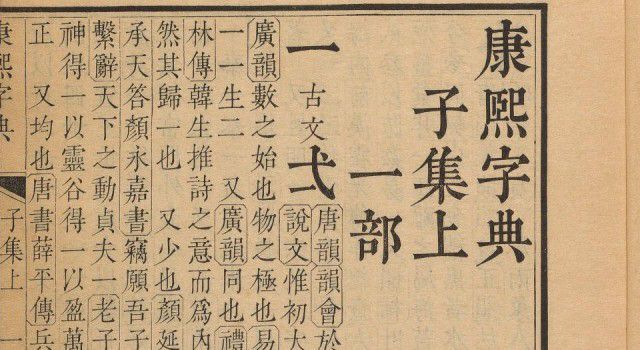 康熙字典
子集上
一部
一 古文 弌 唐韻韻會於
說文惟初大
廣韻數之始也物之極也易
一一生二 又廣韻同也禮
林傳韓生推詩之意而爲內
然其歸一也 又少也顏延
承天答顏永嘉書竊願吾子
繫辭天下之動貞夫一老子
神得一以靈谷得一以盈萬
正 又均也唐書薛平傳兵
康熙字典 子集上 一